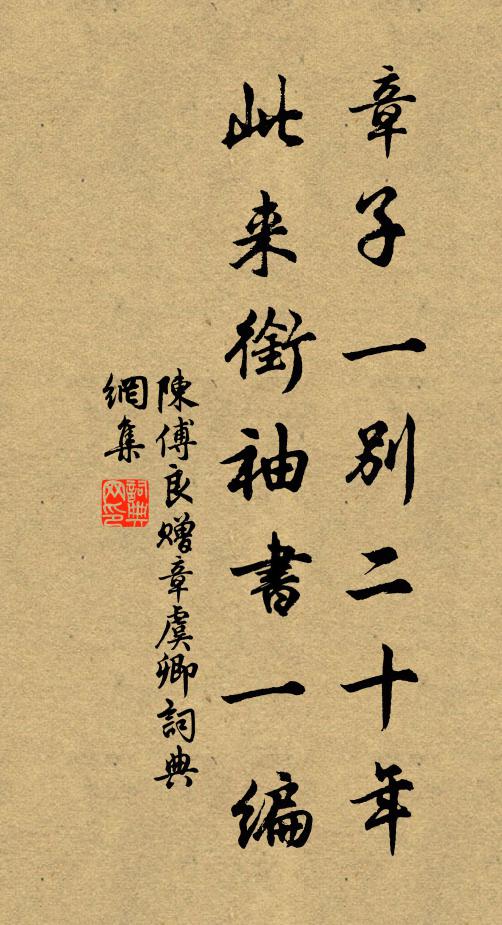 章子一别二十年
此来銜袖書一编
陳傅良赠章虞卿詞典
網集
詞典網印